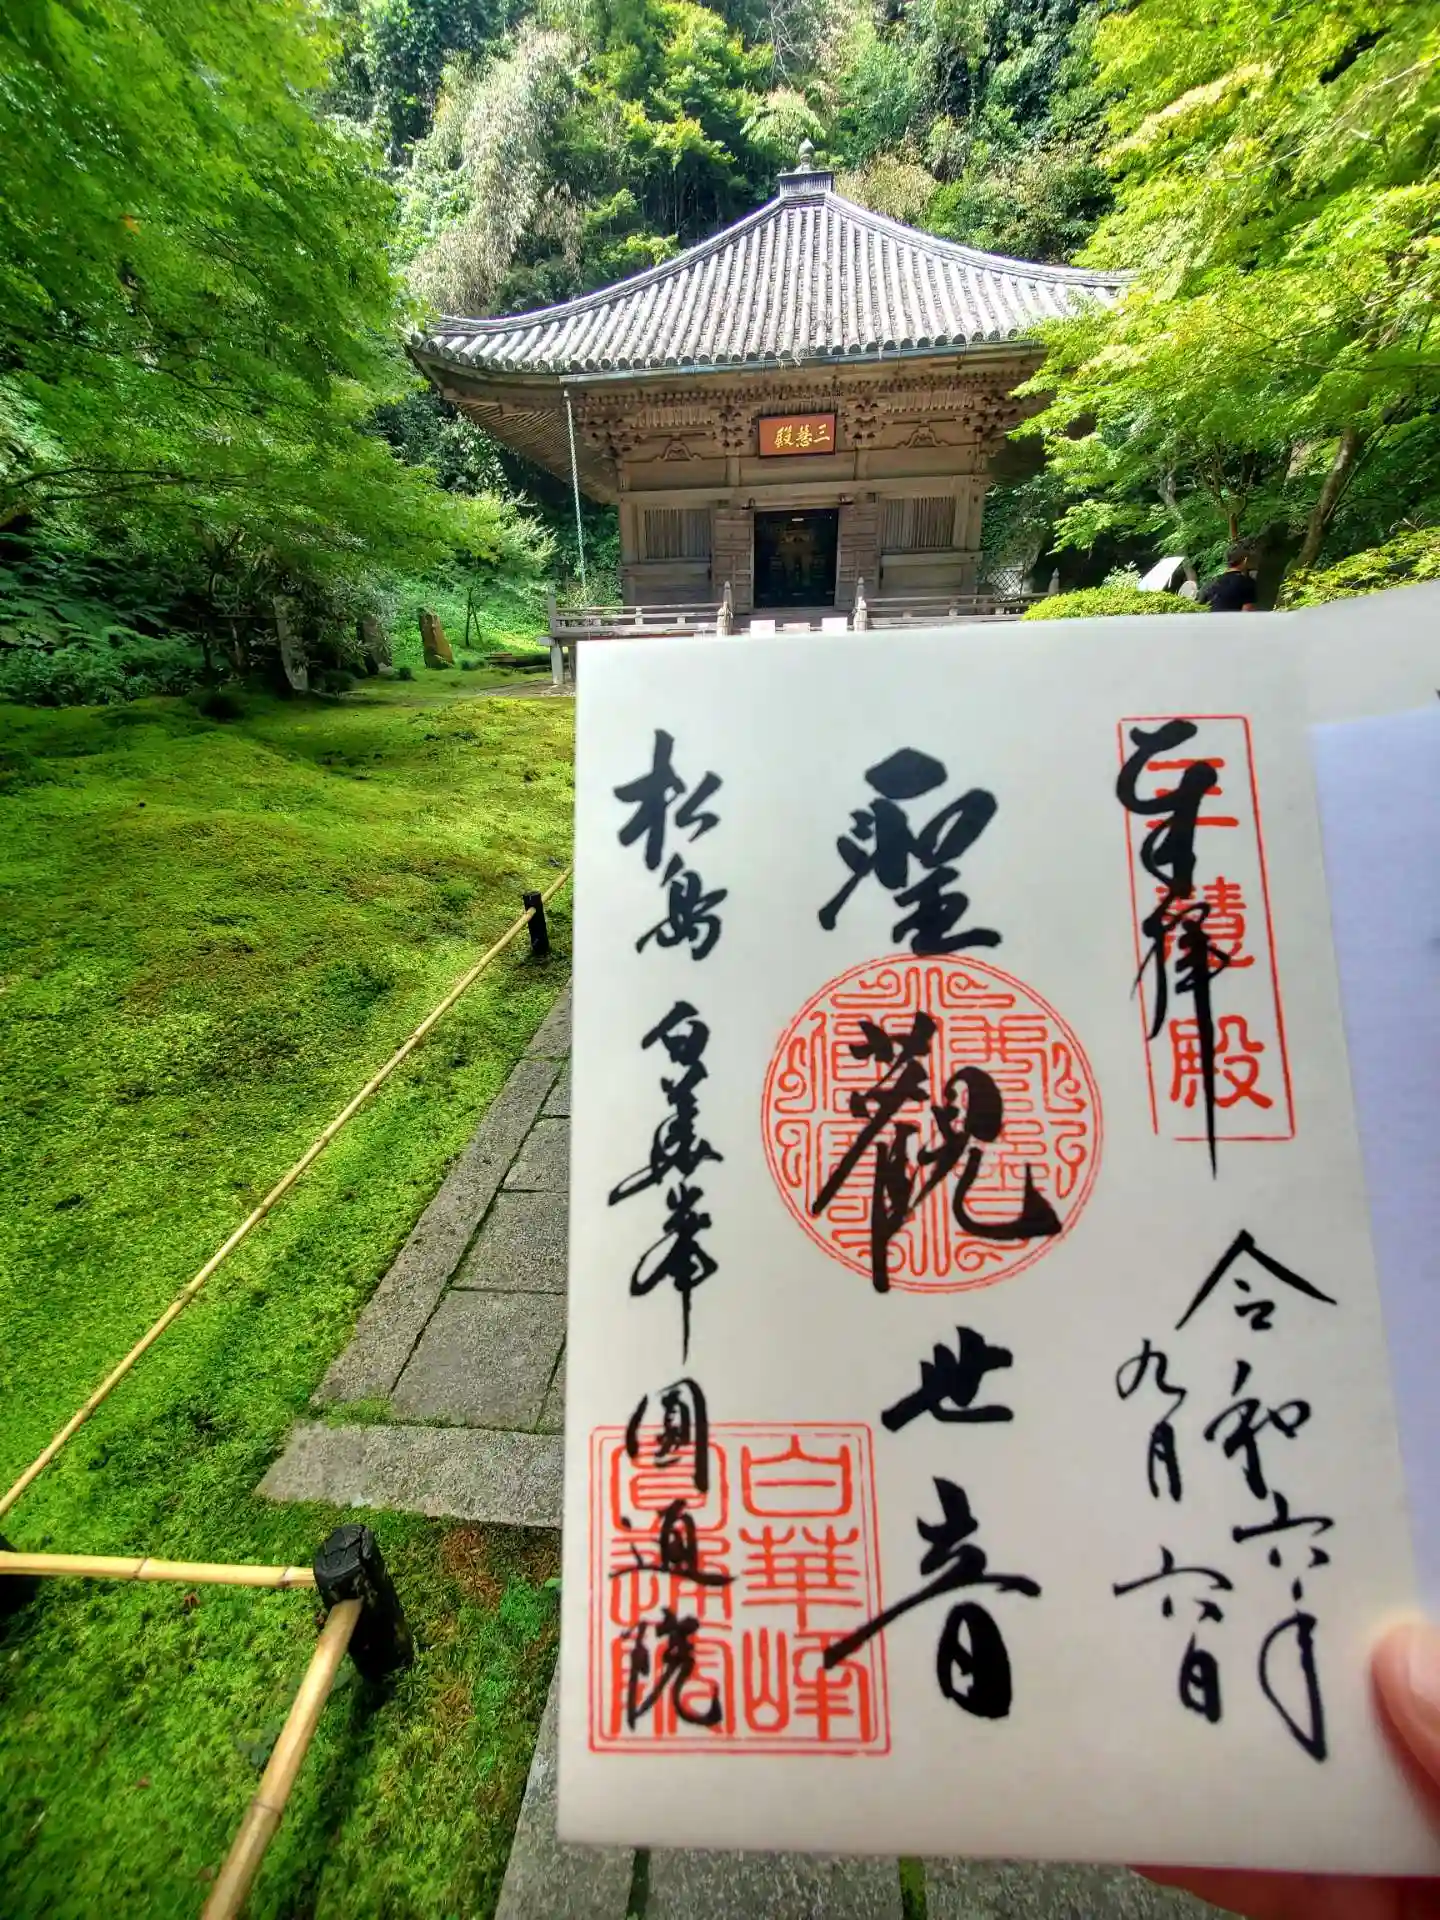 三慧殿
奉拝
三慧殿
令和六年
九月六日
聖観世音
松島 白華峯 圓通院
白華峰
圓通院